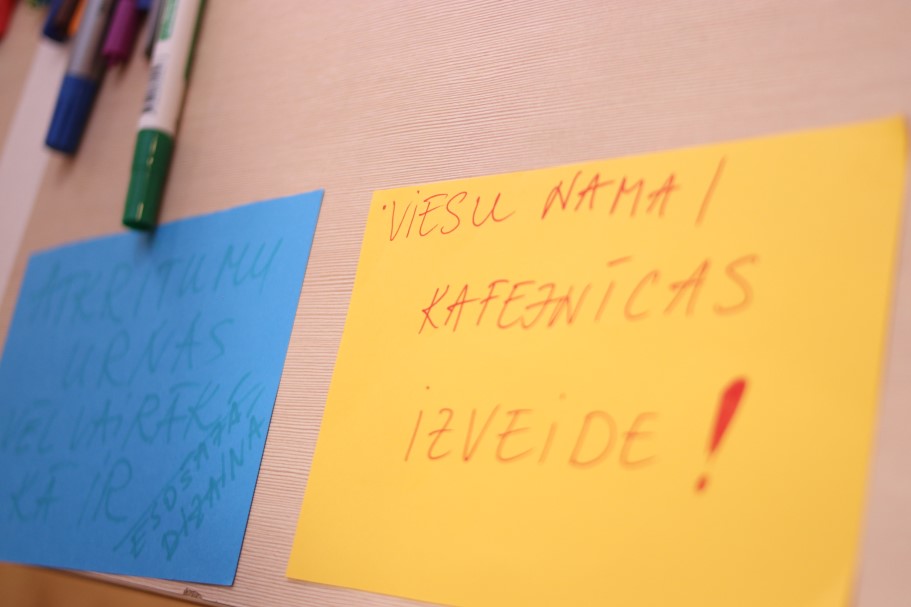 ATKRITUMU
URNAS
VĒL VAIRĀK
KĀ IR
ESOŠAJĀ
DIZAINĀ
VIESU NAMA /
KAFEJNĪCAS
IZVEIDE!